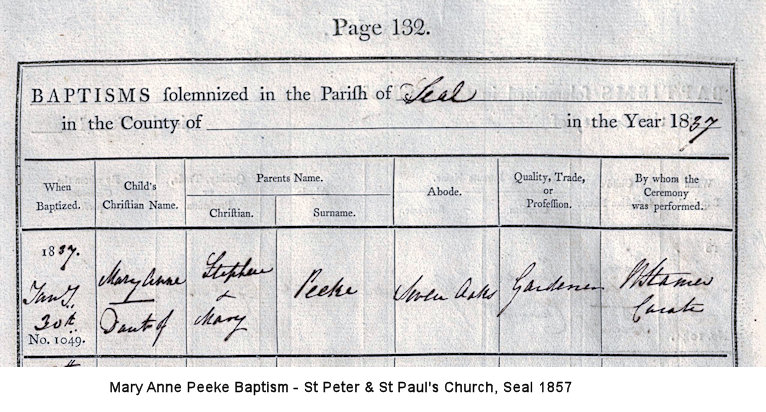 Page 132.
BAPTISMS solemnized in the Parish of Seal
in the County of in the Year 1837
When Baptized.
Child's Christian Name.
Parents Name.
Christian.
Surname.
Abode.
Quality, Trade, or Profession.
By whom the Ceremony was performed.
1837.
Jany
30th
No. 1049.
Mary Anne
Daut of
Stephen
&
Mary
Peeke
Seven Oaks
Gardener
Curate
Mary Anne Peeke Baptism - St Peter & St Paul's Church, Seal 1857